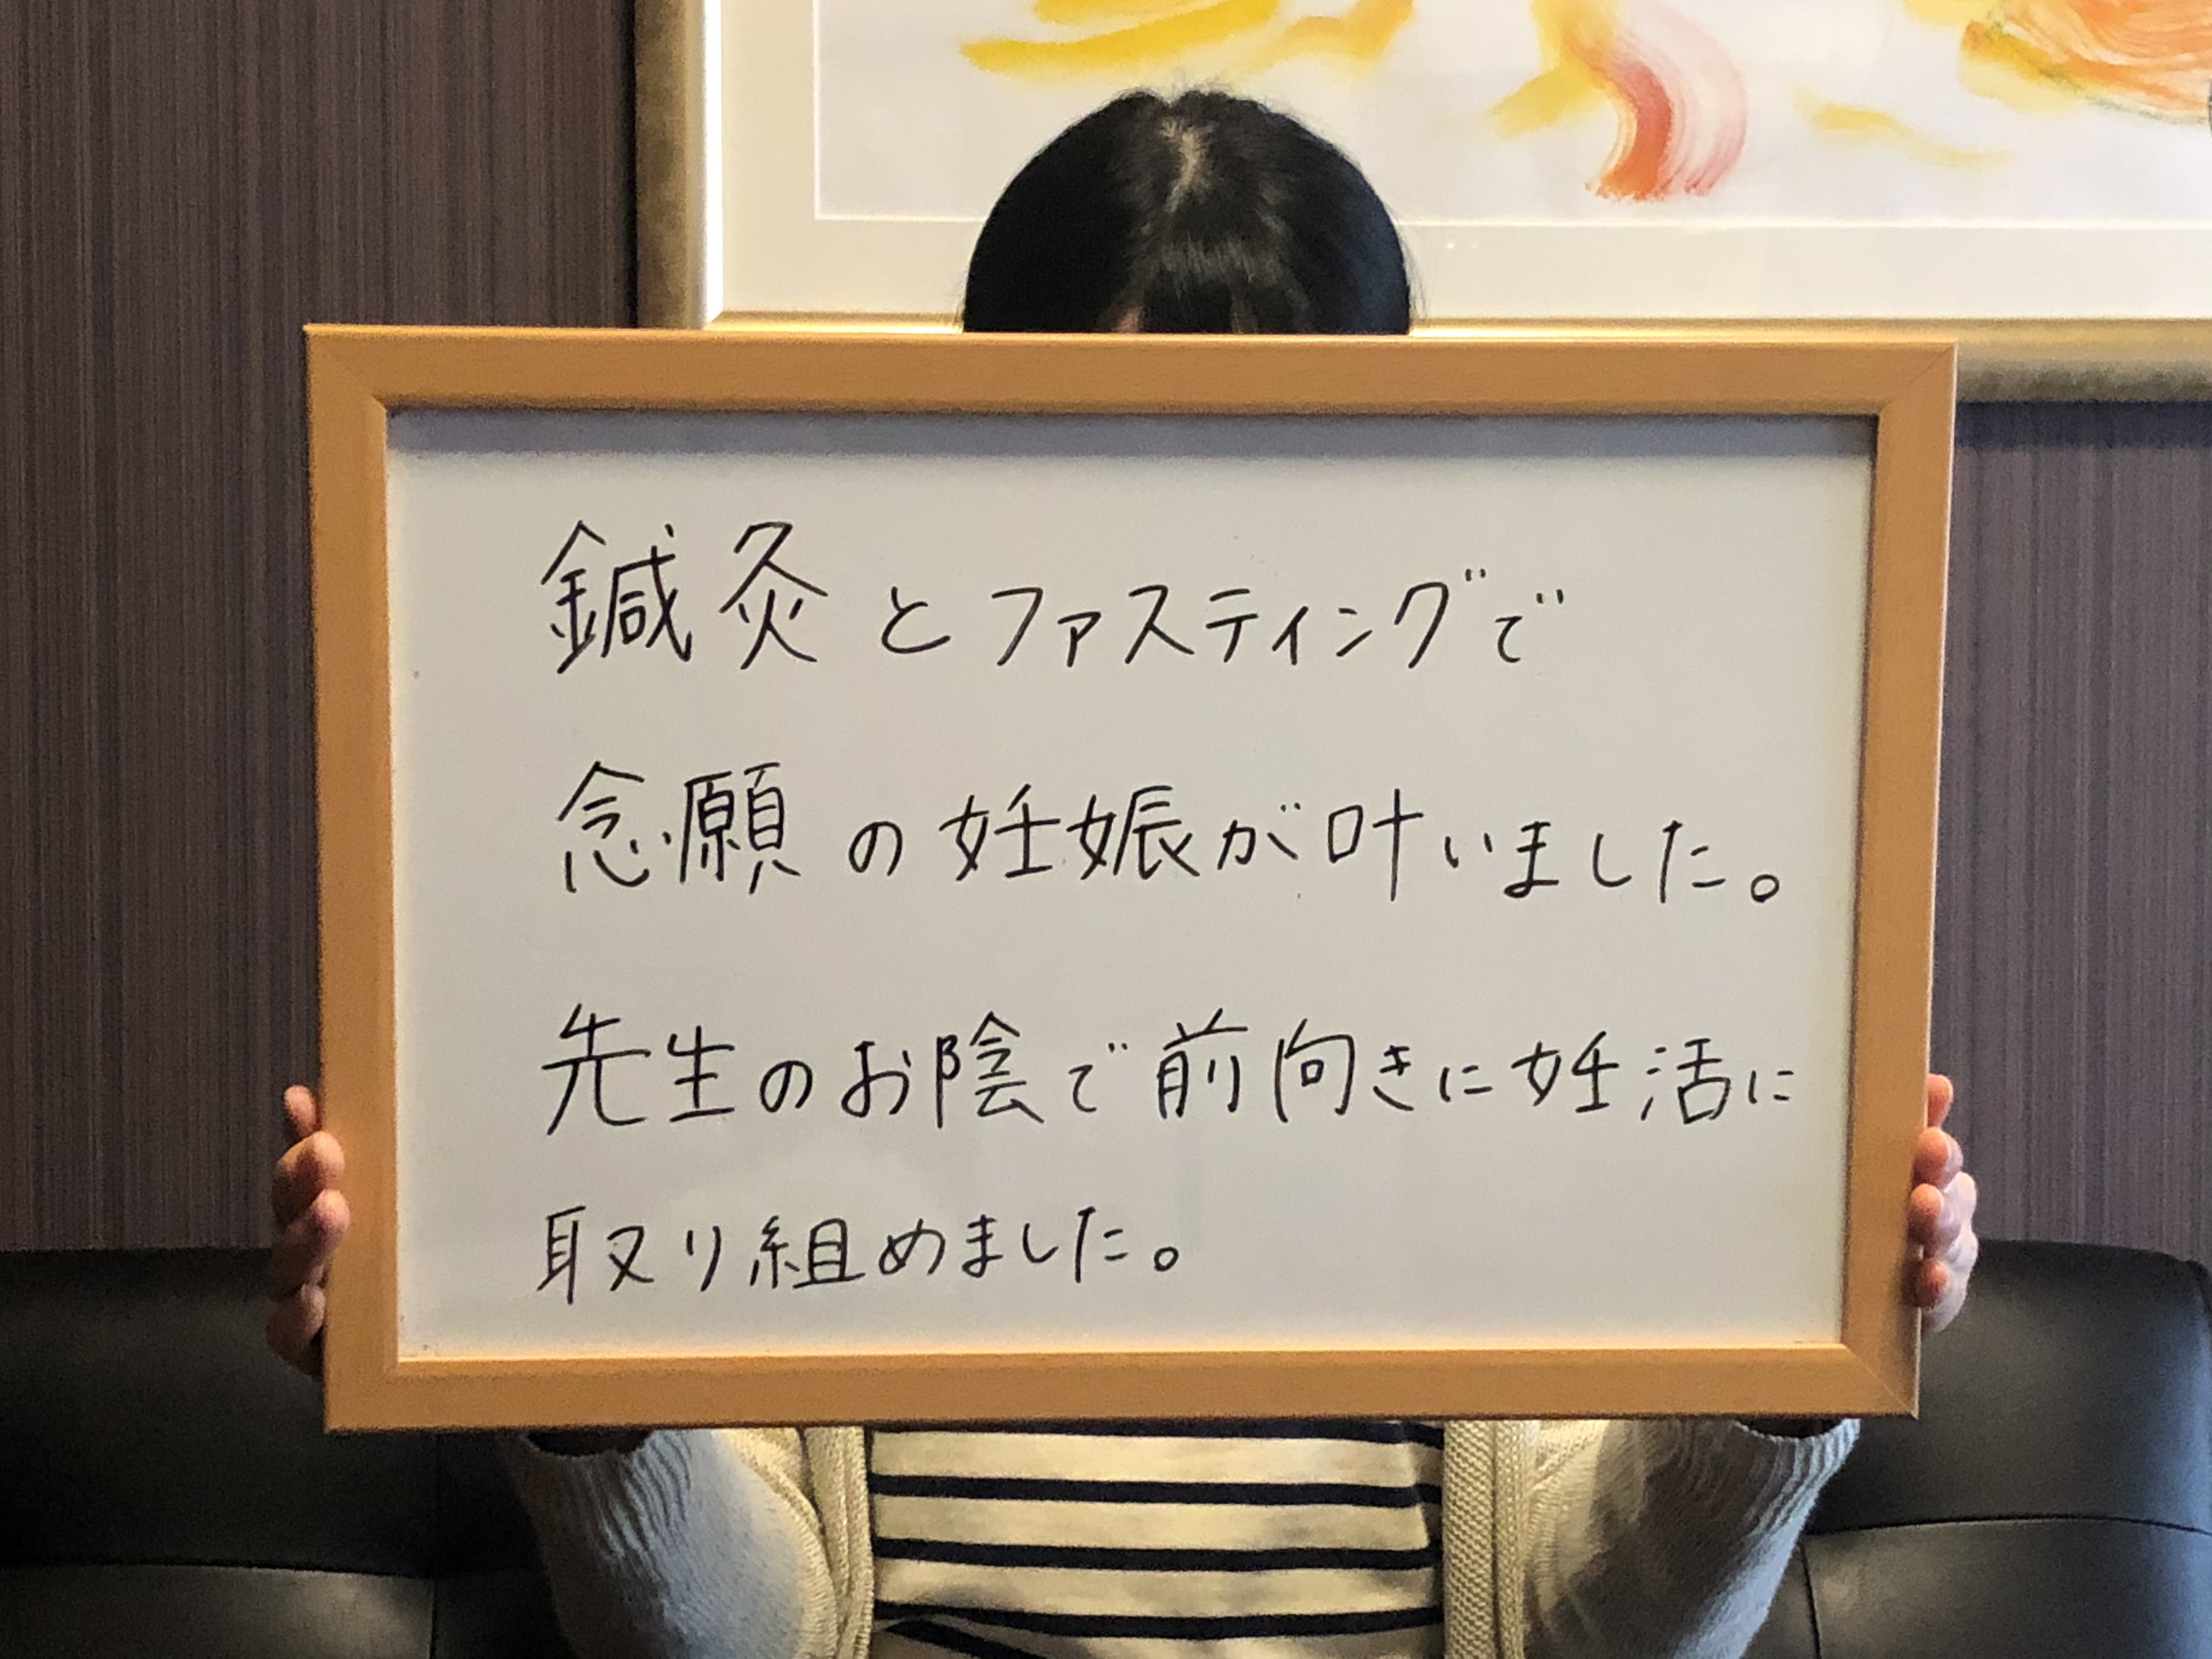 鍼灸とファスティングで
念願の妊娠が叶いました。
先生のお陰で前向きに妊活に
取り組めました。